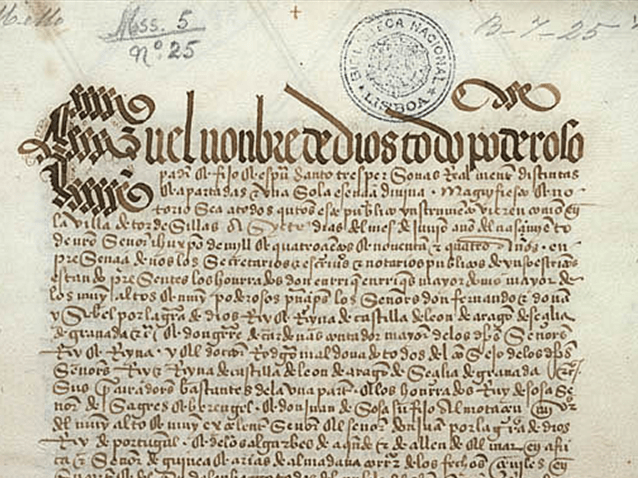 Mss. 5
nº 25
B-7-25
BIBLIOTECA NACIONAL
LISBOA
En el nonbre de dios todo poderoso
padre & fijo & espu santo tres personas Realmente distintas
& apartadas & vna sola esencia diuina. Magnifiesto & no
torio sea a todos quantos este publico ynstrumento vieren como en
la villa de tordesillas a syete dias del mes de junio año del nasçimiento
de nro señor ihu xpo de mill & quatroçientos & nouenta & quatro años. en
presençia de nos los secretarios & escriuanos & notarios publicos de yuso escriptos
estando presentes los honrrados don enrrique enrriques mayordomo mayor de
los muy altos & muy poderosos prinçipes los señores don fernando & doña
ysabel por la graçia de dios Rey & Reyna de castilla de leon de aragon de seçilia
de granada & don guterre de cardenas contador mayor de los dichos señores
Rey & Reyna. y el doctor Rodrigo maldonado todos del consejo de los dichos
señores Rey & Reyna de castilla de leon de aragon de seçilia de granada
sus procuradores bastantes de la vna parte. & los honrrados Ruy de sosa señor
de sagres & berenguel. & don juan de sosa su fijo almotaçen mayor
del muy alto & muy exçelente señor el señor don juan por la graçia de dios
Rey de portugal. & de los algarbes de aquende & de allende el mar en afri
ca & señor de guinea & arias de almadana corregidor de los fechos çeuiles en